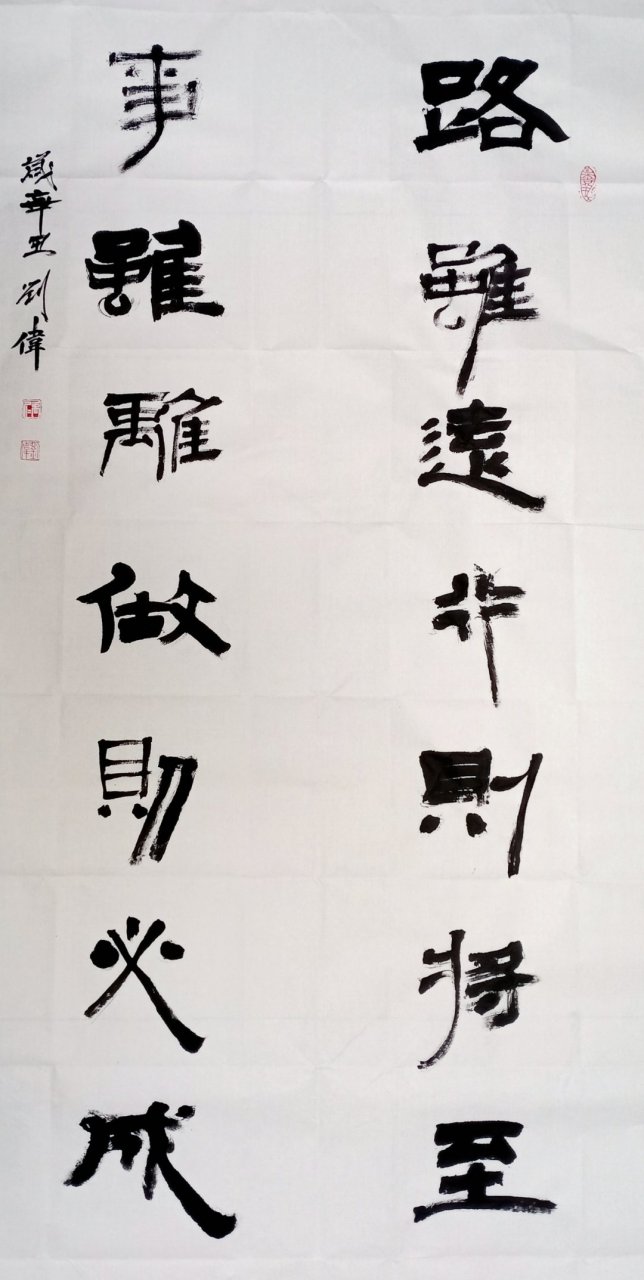 路雖遠行則將至
事雖難做則必成
歲辛丑劉偉